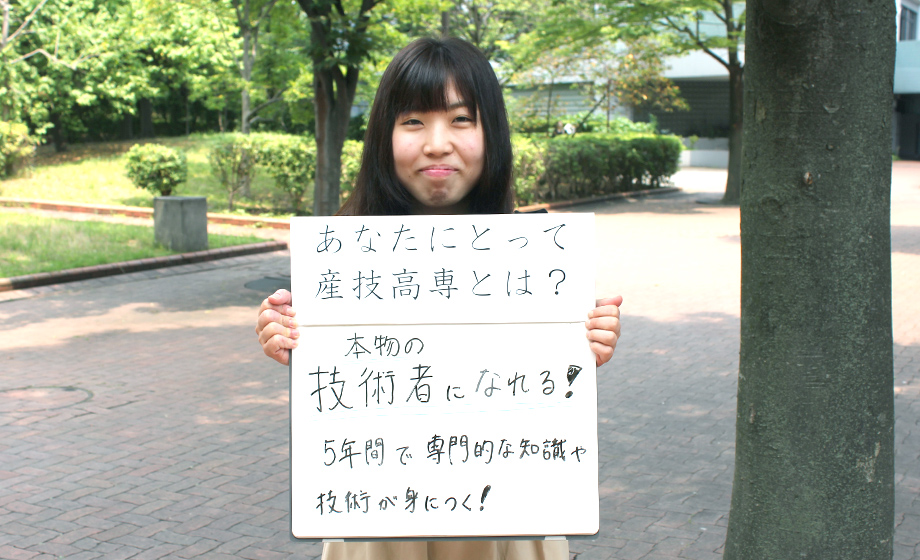 あなたにとって
産技高専とは？
本物の
技術者になれる!
5年間で専門的な知識や
技術が身につく!